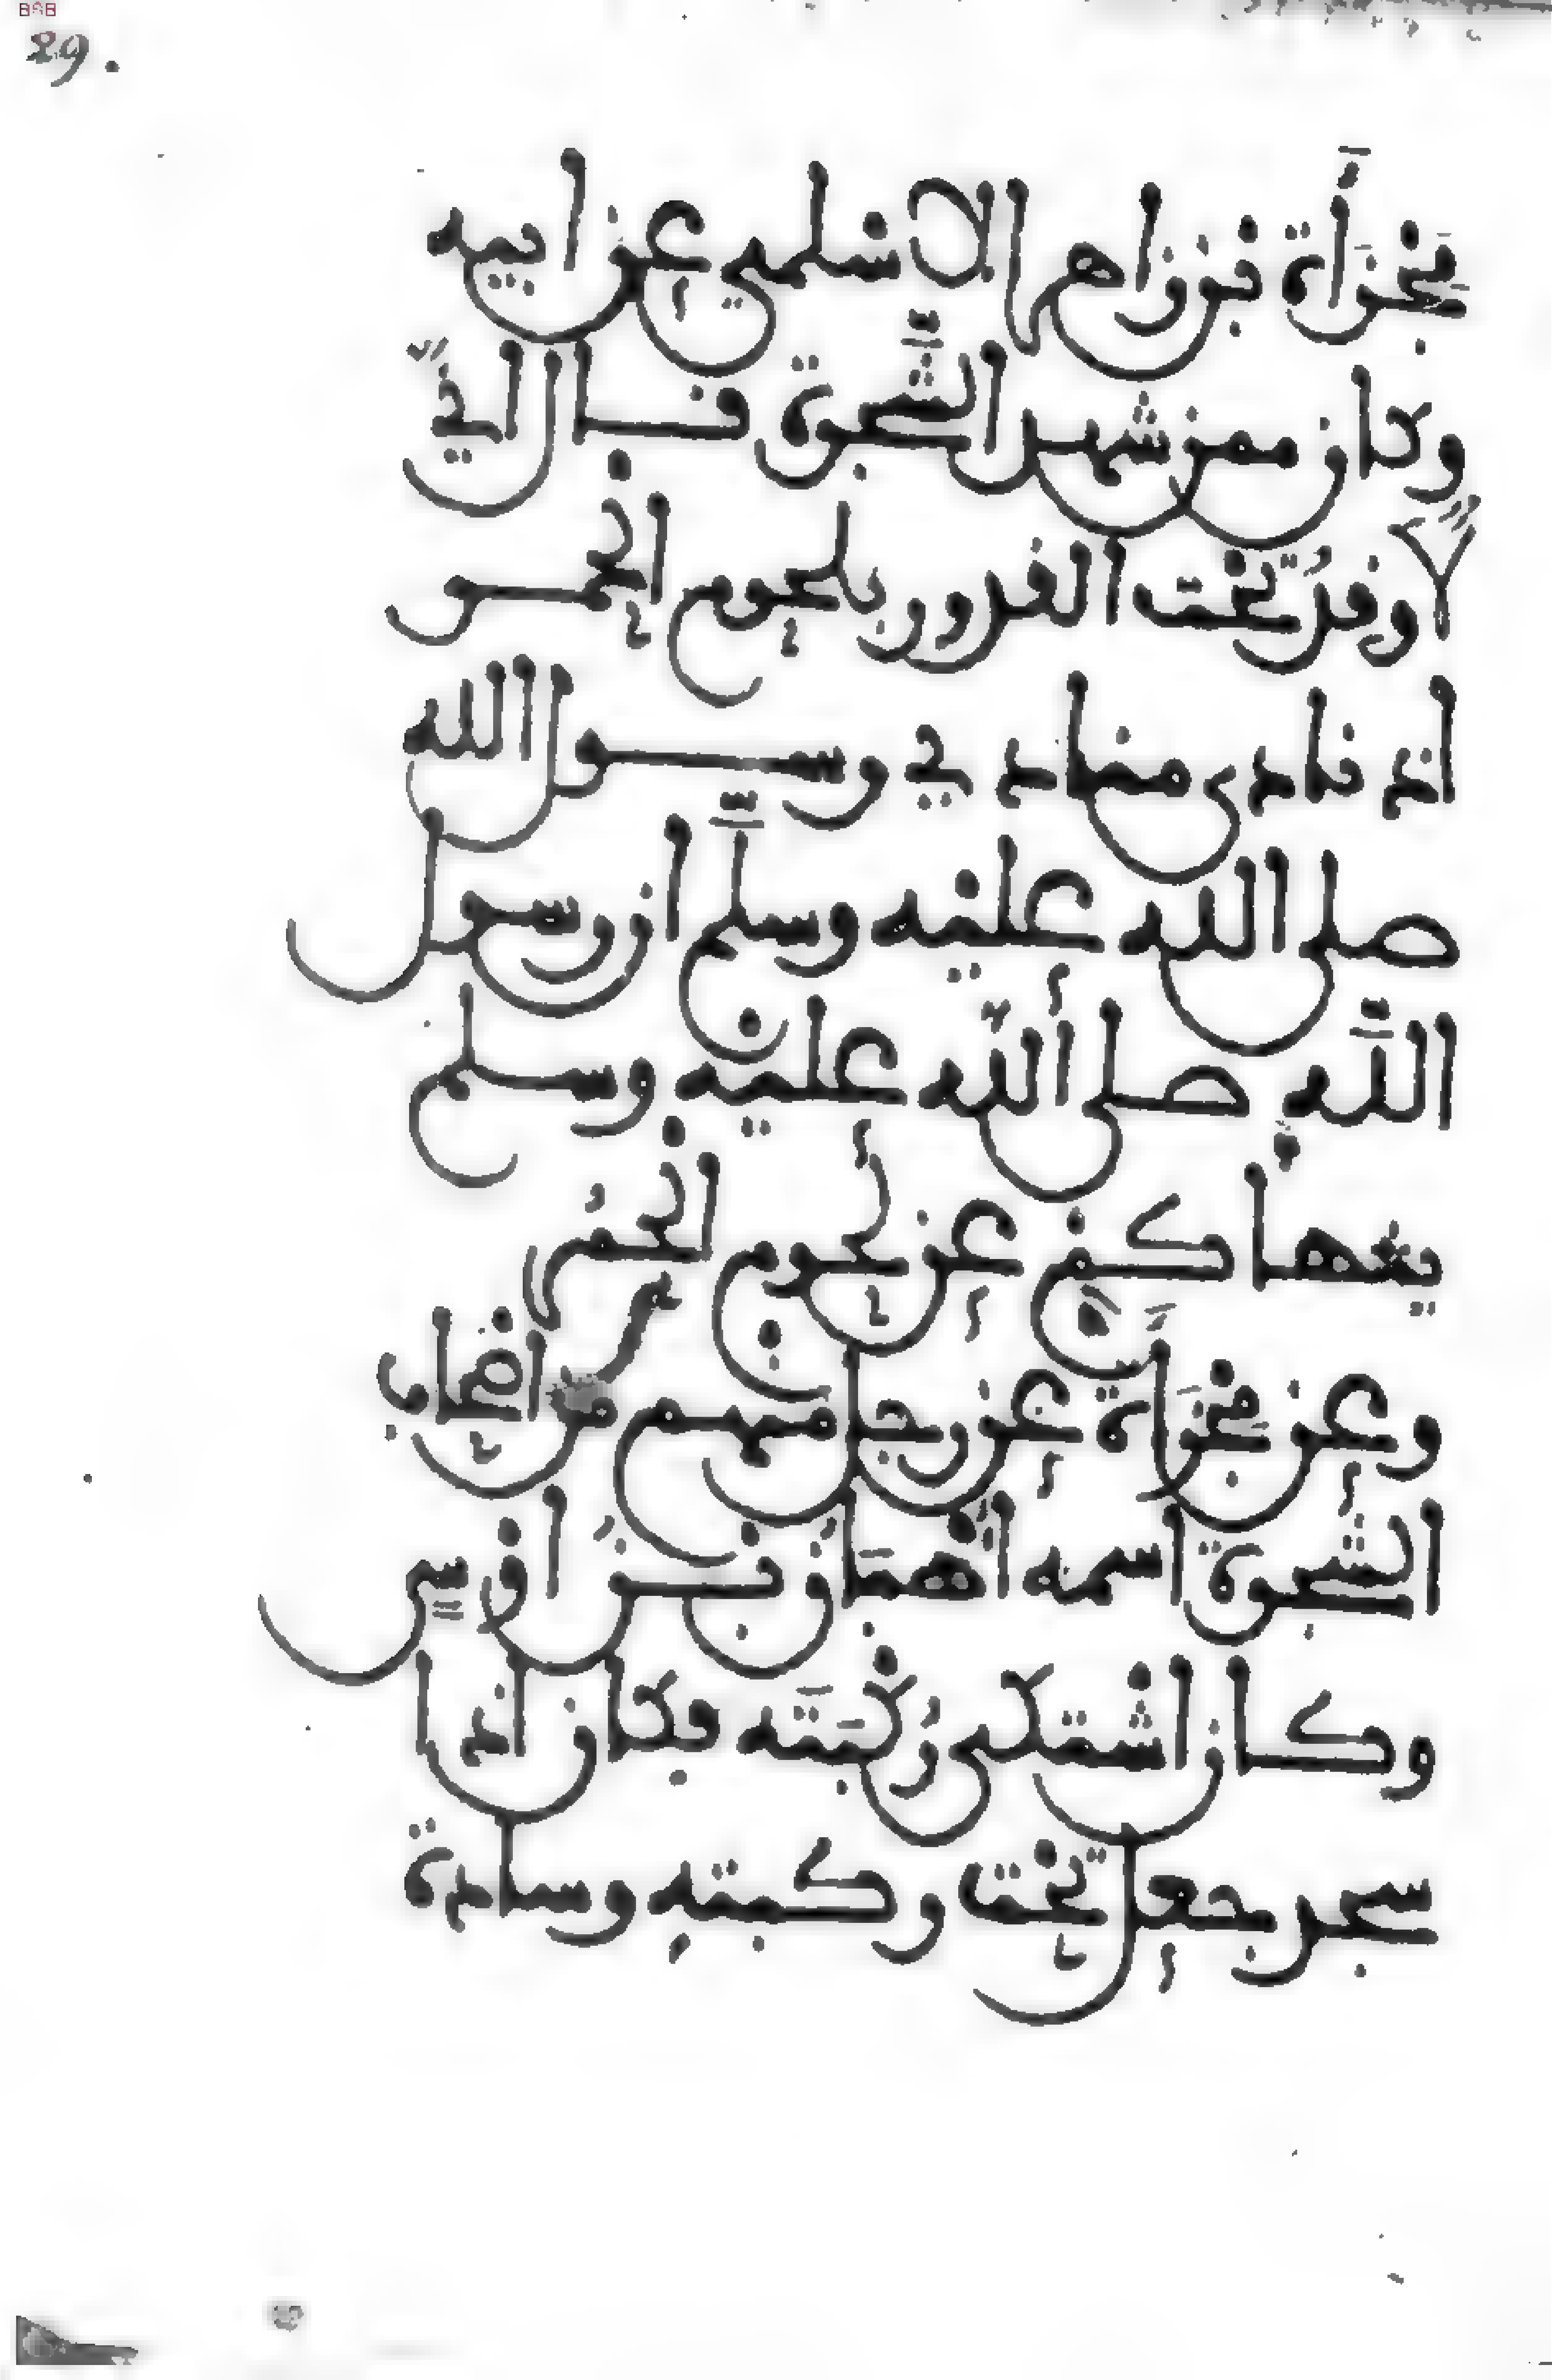 29.
مجزأة بن زاهر الاسلمي عن ابيه
وكان ممن شهد الشجرة قال اني
لاوقد تحت القدور بلحوم الحمر
اذ نادى مناد ي رسول الله
صلى الله عليه وسلم ان رسول
الله صلى الله عليه وسلم
ينهاكم عن لحوم الحمر
وعن مجزأة عن رجل منهم من اصحاب
الشجرة اسمه اهبان بن اوس
وكان اشتكى ركبته فكان اذا
سجد جعل تحت ركبته وسادة